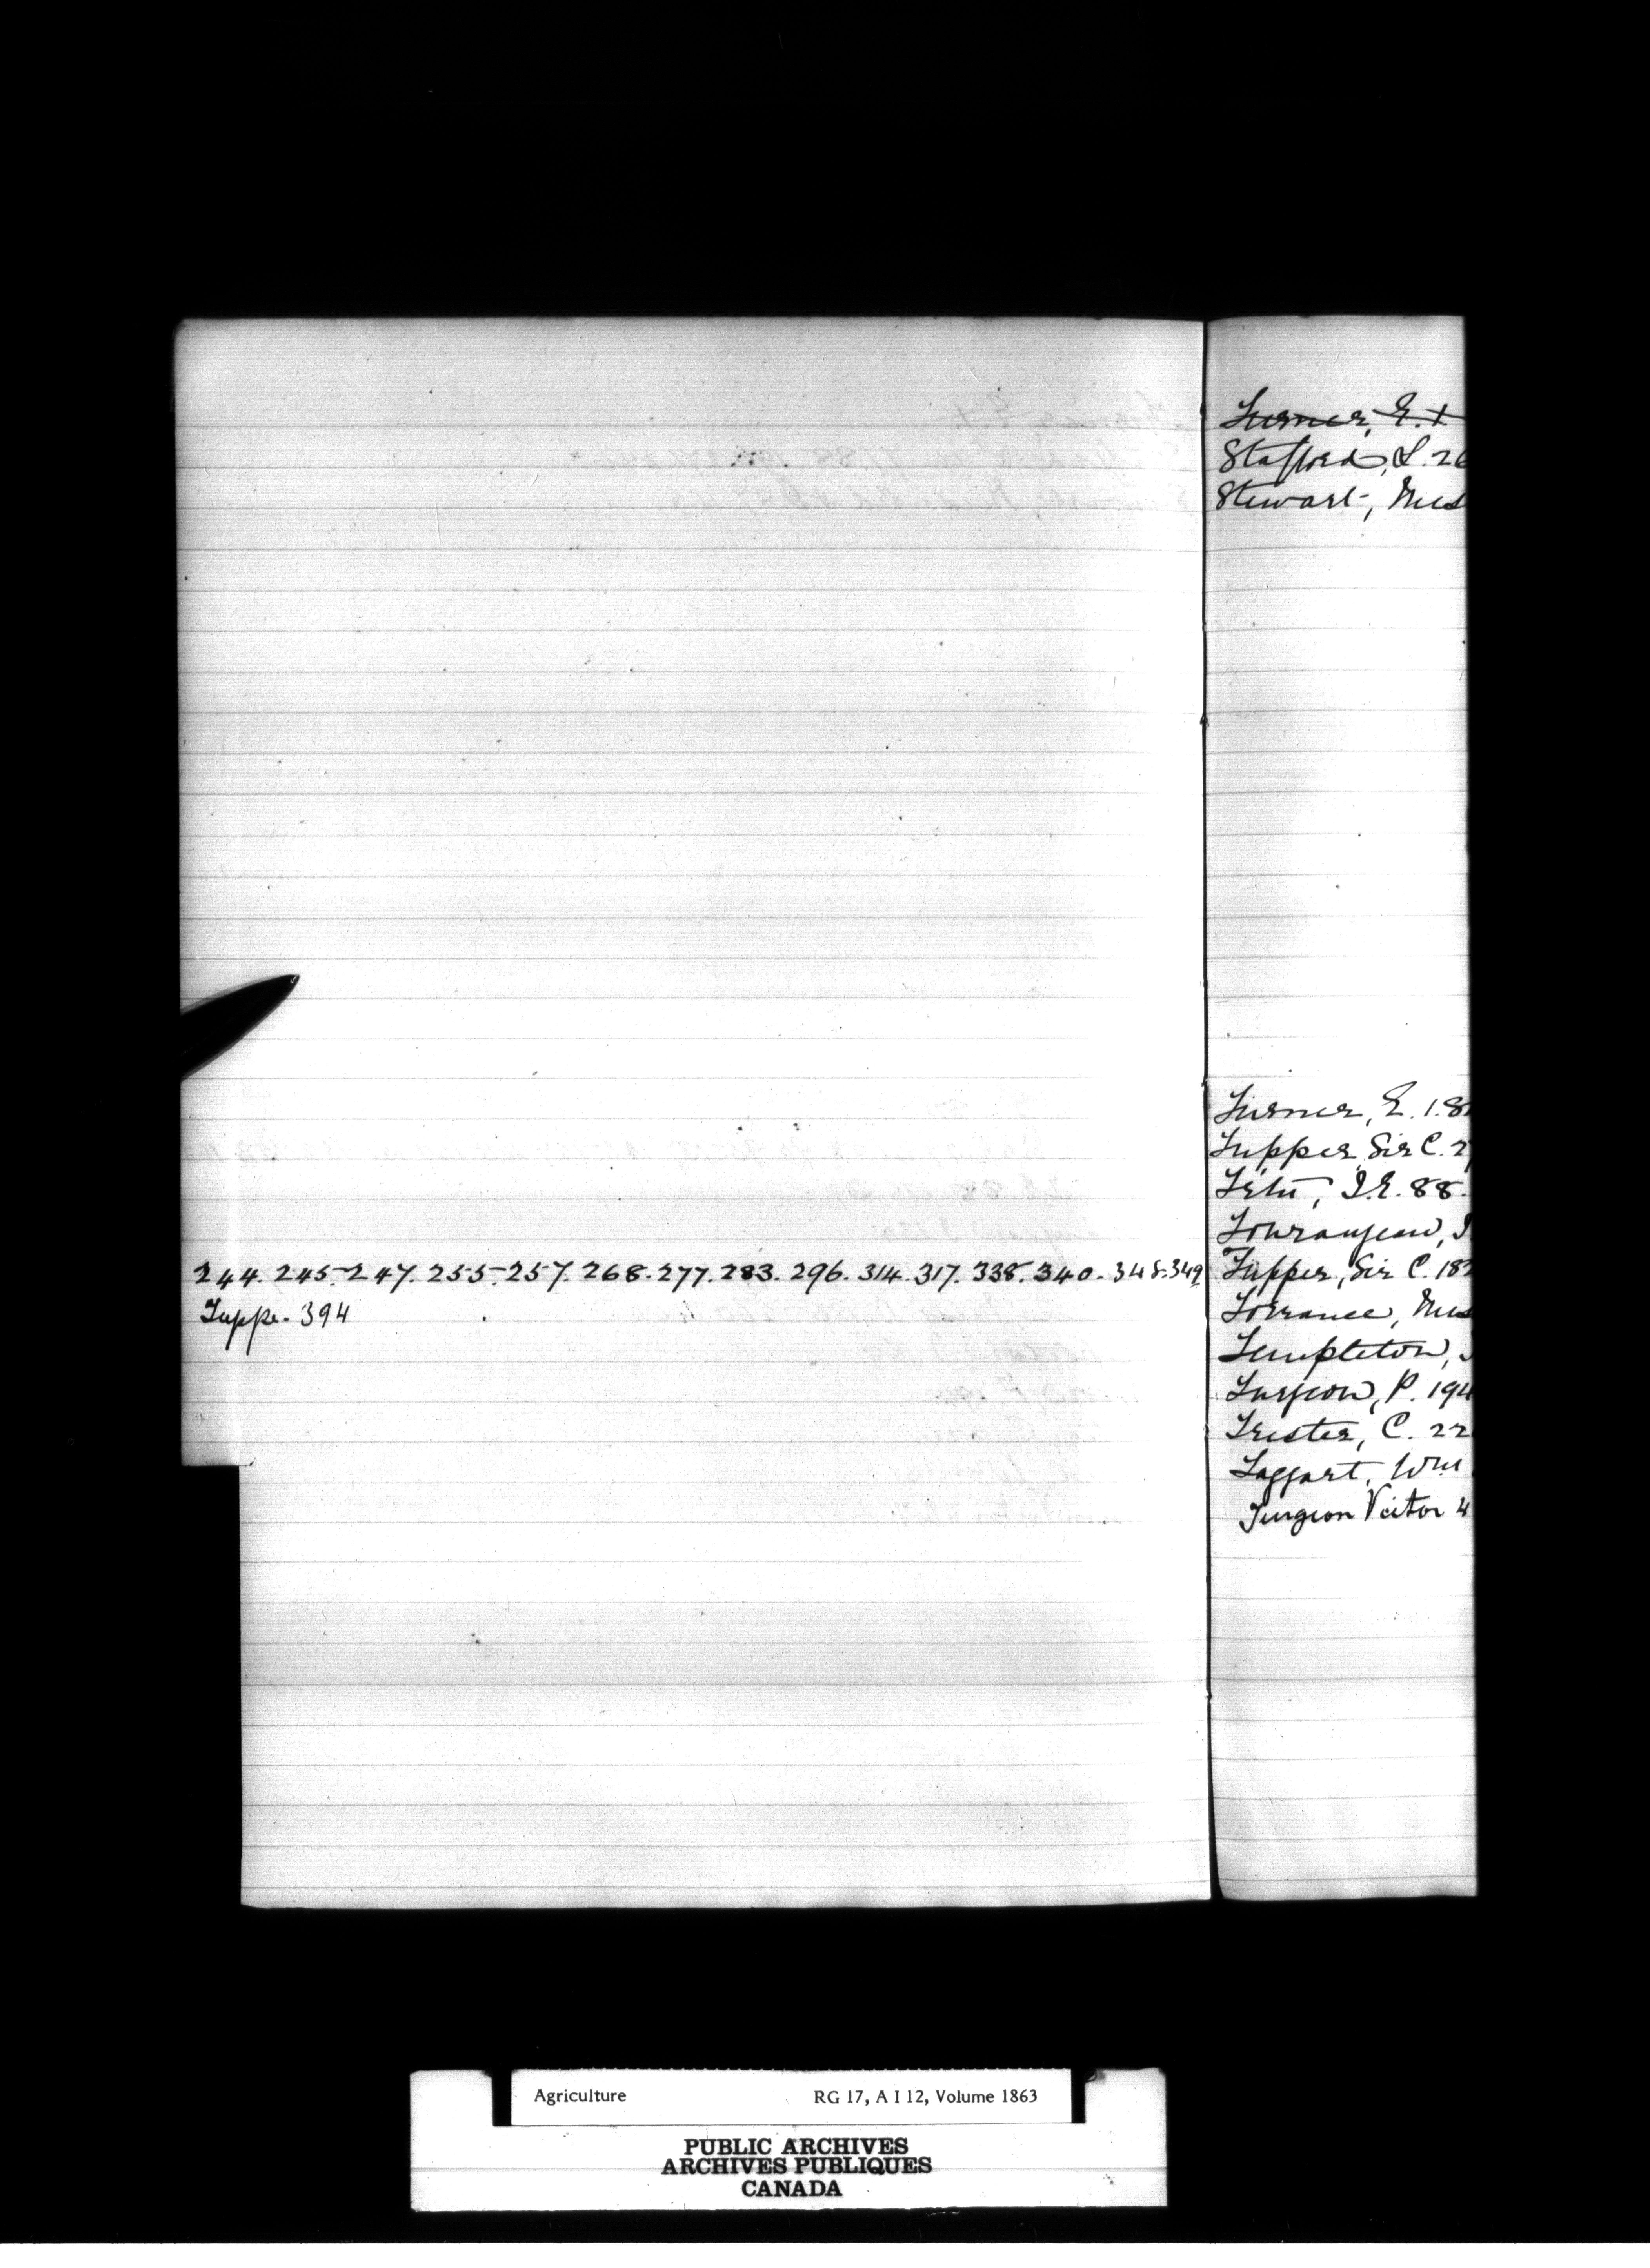 244. 245. 247. 255. 257. 268. 277. 283. 296. 314. 317. 338. 340. 348. 349
Tuppe. 394
Turner, E. 1
Stafford, L. 26
Stewart, Miss
Turner, E. 1. 8
Tupper, Sir C. 2
Têtu, J.E. 88.
Tourangeau, J
Tupper, Sir C. 182
Torrance, Miss
Templeton, J
Turgeon, P. 194
Trester, C. 22
Taggart, Wm
Turgeon Victor 4
Agriculture RG 17, A I 12, Volume 1863
PUBLIC ARCHIVES
ARCHIVES PUBLIQUES
CANADA